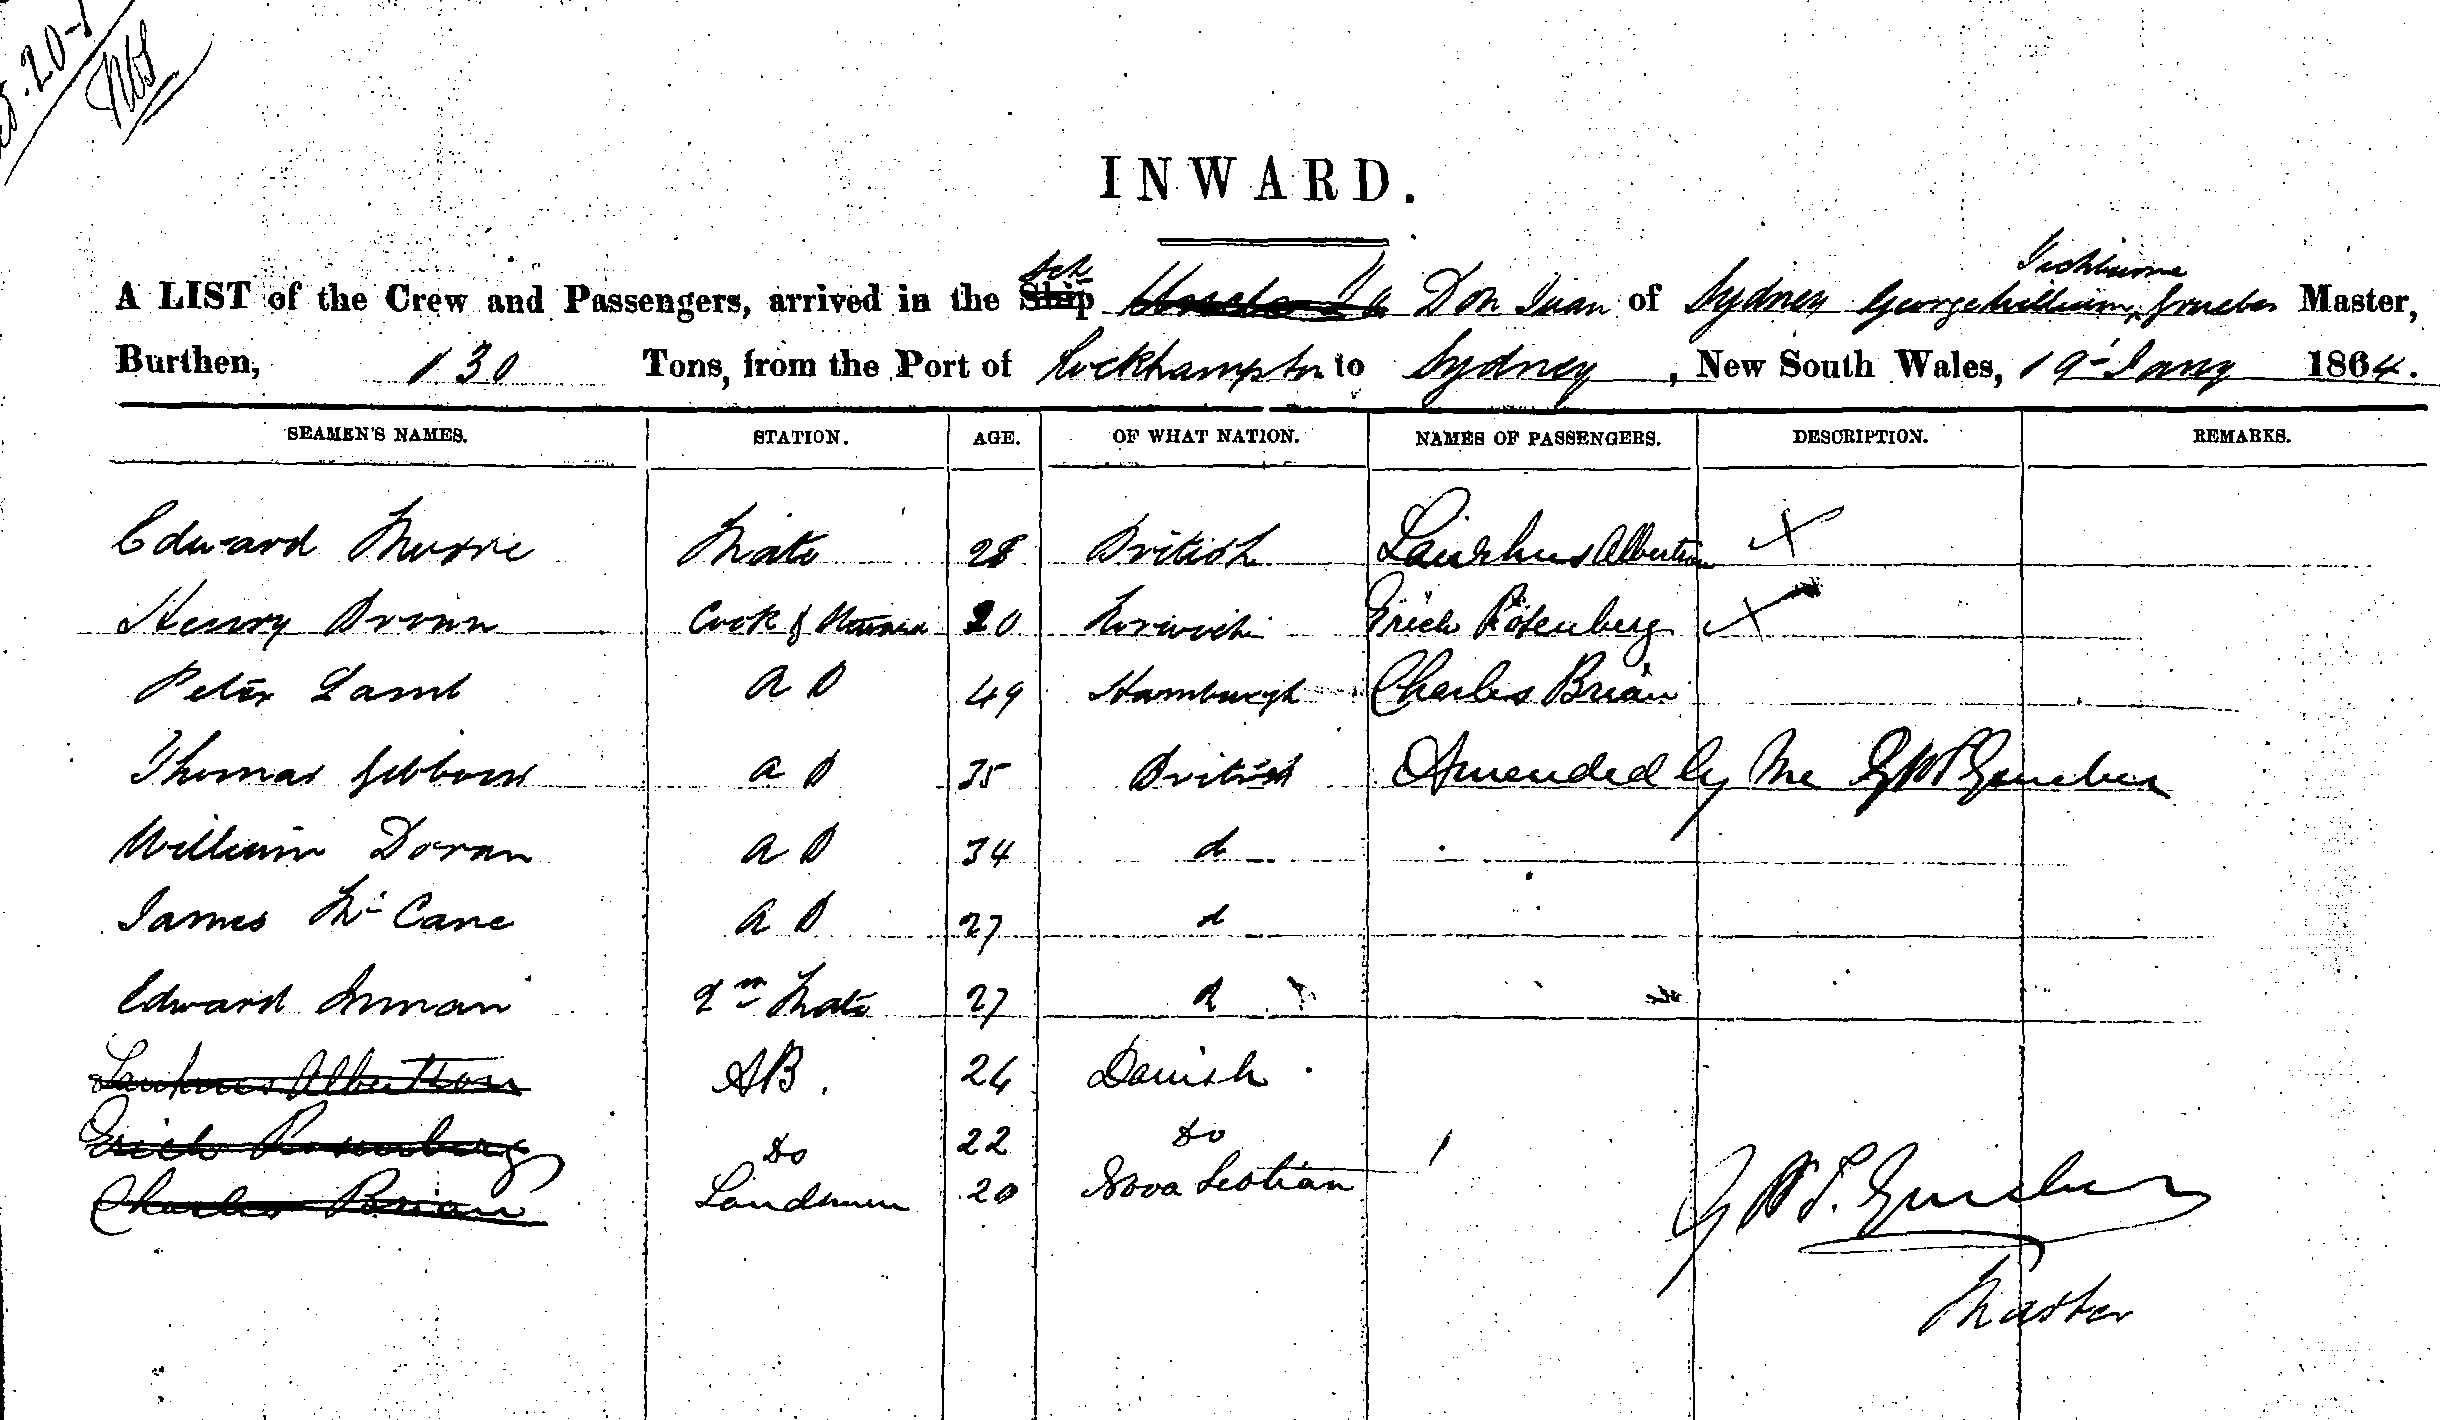 INWARD.
A LIST of the Crew and Passengers, arrived in the Ship Sch Don Juan of Sydney George William Tichburne Grueber Master,
Burthen, 130 Tons, from the Port of Rockhampton to Sydney, New South Wales, 19 Jany 1864.
SEAMEN'S NAMES. STATION. AGE. OF WHAT NATION. NAMES OF PASSENGERS. DESCRIPTION. REMARKS.
Edward Mate 28 British Albertson X
Henry Brown Cook & 20 Erich Rosenberg X
Peter Lamb A B 49 Hamburgh Charles Brian
Thomas Gibbons A B 35 British Amended by Me G W T Grueber
William Doran A B 34 d
James McCane A B 27 d
Edward Inman 2nd Mate 27 d
Albertson AB. 24 Danish
Erich Rosenberg Do 22 Do
Charles Brian Landsman 20 Nova Scotian
G W T. Grueber
Master